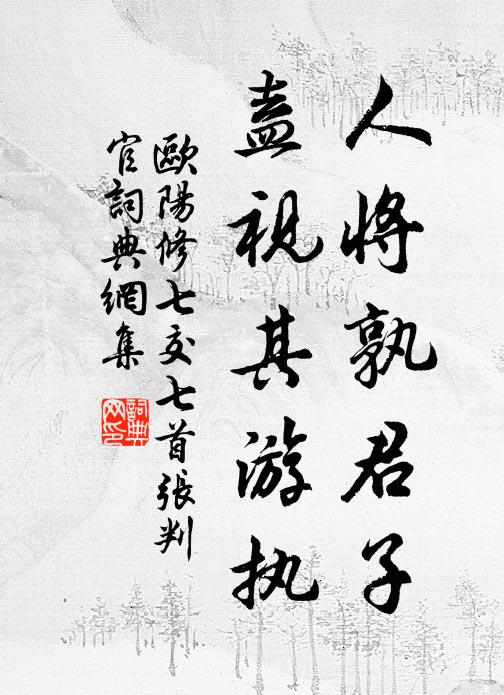 人將孰君子
盍視其游执
歐陽修七交七首張判
官詞典網集
詞典
网印